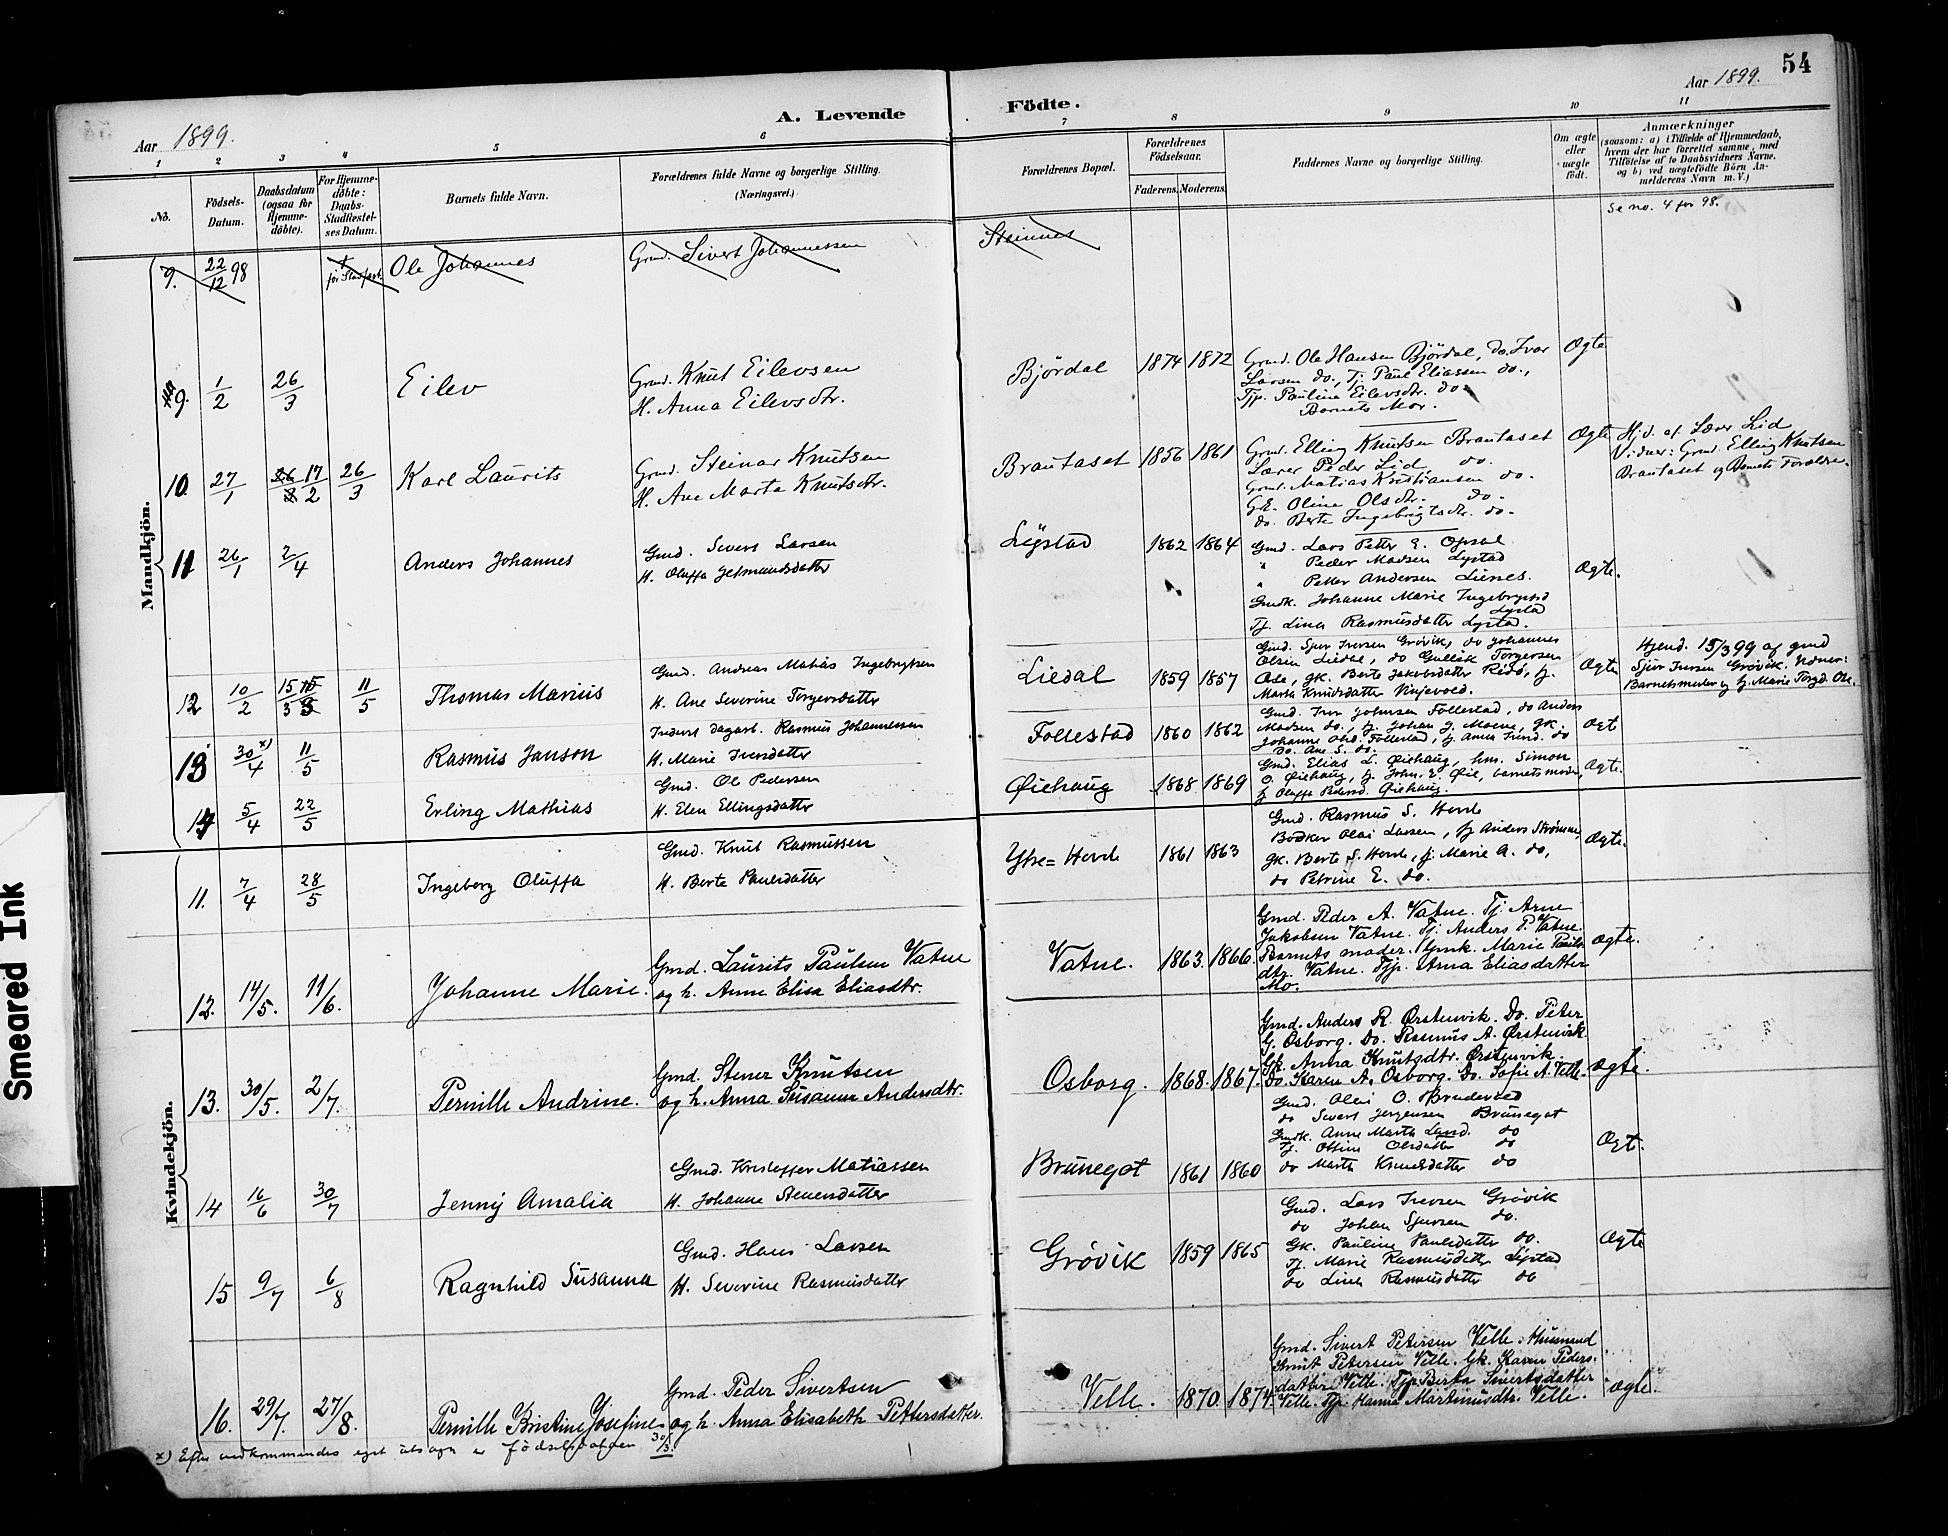 54
Aar 1899.
A. Levende
Födte.
Aar 1899.
1 2 3 4 5 6 7 8 9 10 11
No.
Födsels-
Datum.
Daabsdatum
(ogsaa for
Hjemme-
döbte).
For Hjemme-
döbte:
Daabs-
Stadfæstel-
ses Datum.
Barnets fulde Navn.
Forældrenes fulde Navne og borgerlige Stilling.
(Næringsvei.)
Forældrenes Bopæl.
Forældrenes
Födselsaar.
Faderens. Moderens.
Faddernes Navne og borgerlige Stilling.
Om ægte
eller
uægte
født.
Anmærkninger
(saasom: a) i Tilfælde af Hjemmedaab,
hvem der har forrettet samme, med
Tilföielse af to Daabsvidners Navne.
og b) ved uægtefödte Börn An-
melderens Navn m. V.)
Se no. 4 for 98.
Mandkjön.
9. 22/12 98 Ole Johannes Grmd. Sivert Johannessen Steinnes
9. 1/2 26/3 Eilev
Grmd. Knut Eilevsen
H. Anna Eilevsdtr.
Björdal 1874 1872
Grmd. Ole Hansen Björdal, do. Ivar
Larsen do., Tj. Paul Eliassen do.,
Tjp. Pauline Eilevsdtr. do.
Barnets Mor.
Ægte
10. 27/1 17/2 26/3 Karl Laurits
Grmd. Steinar Knutsen
H. Ane Marta Knutsdtr.
Brautaset 1856 1861
Grmd. Elling Knutsen Brautaset
Lærer Peder Lid do.
Grmd. Matias Kristiansen do.
Gk. Oline Olsdtr. do.
do. Berte Ingebrigtsdtr. do.
Ægte
Hjd. af Lærer Lid
Vidner: Grmd. Elling Knutsen
Brautaset og Barnets Forældre.
11 26/1 2/4 Anders Johannes
Gmd. Sivert Larsen
H. Oluffa Jetmundsdatter
Lystad 1862 1864
Gmd. Lars Petter E. Opsal
" Peder Madsen Lystad
" Petter Andersen Lienes.
Gmdk. Johanne Marie Ingebrigtsd
Lystad
Tj. Lina Rasmusdatter Lystad.
Ægte.
12 10/2 15/3 11/5 Thomas Marius
Gmd. Andreas Matias Ingebrigtsen
H. Ane Severine Torgersdatter
Liedal 1859 1857
Gmd. Sjur Iversen Grøvik, do Johannes
Olsen Liedal, do Gullik Torgersen
Ose, gk. Berte Jakobsdatter Reed, tj.
Marta Knudsdatter Vinjevold.
Ægte
Hjemd. 15/3 99 af gmd
Sjur Iversen Grøvik. Vidner:
Barnets moder og tj. Marie Torgd. Ose.
13 30/4 x) 11/5 Rasmus Janson
Inderst dagarb. Rasmus Johannessen
H. Marie Iversdatter
Follestad 1860 1862
Gmd. Iver Johnsen Follestad, do Anders
Madsen do, tj. Johan J. Moene, gk.
Johanne Olsd. Follestad, tj Anna Iversd. do
do. Ane S. do.
Ægt
14 5/4 22/5 Erling Mathias
Gmd. Ol Pedersen
H. Elen Ellingsdatter
Øiehaug 1868 1869
Gmd. Elias L. Øiehaug, hm. Simon
O. Øiehaug, tj. John. E. Øie, barnets moder,
tj Oluffa Pedersd. Øiehaug.
Ægt.
Kvindekjön.
11. 7/4 28/5 Ingeborg Oluffa
Gmd. Knut Rasmussen
H. Berte Paulsdatter
Ytre=Hovde 1861 1863
Gmd. Rasmus S. Hovde
Bødker Olai Larsen, tj Anders Strømme,
gk. Berte S. Hovde, tj. Marie A. do,
do Petrine E. do.
Ægte.
12. 14/5. 11/6. Johanne Marie.
Gmd. Laurits Paulsen Vatne
og h. Anne Elisa Eliasdtr.
Vatne. 1863. 1866.
Gmd. Peder A. Vatne. Tj. Arne
Jakobsen Vatne. Tj. Anders P. Vatne.
Barnets moder. Gmk. Marie Pauls-
dtr. Vatne. Tjp. Anna Eliasdatter
Mo.
ægte.
13. 30/5. 2/7. Pernille Andrine.
Gmd. Stener Knutsen
og h. Anna Susanna Andersdtr.
Osborg. 1868. 1867.
Gmd. Anders R. Ørstenvik. Do. Peter
G. Osborg. Do. Rasmus A. Ørstenvik.
Gk. Anna Knutsdtr. Ørstenvik.
Do. Karen A. Osborg. Do. Sofie A. Velle.
ægte.
14 16/6 30/7 Jenny Amalia
Gmd. Kristoffer Matiassen
H. Johanne Stenersdatter
Brunegot 1861 1860
Gmd. Olai O. Brudevold
do Sivert Jørgensen Brunegot
Gmdk. Anne Marta Larsd. do
Tj. Oline Olsdatter do
do Marta Knudsdatter do
Ægt.
15 9/7 6/8 Ragnhild Susanna
Gmd. Hans Larsen
H. Severine Rasmusdatter
Grøvik 1859 1865
Gmd. Lars Iversen Grøvik
do Johan Sjursen do.
Gk. Pauline Paulsdatter do.
Tj. Marie Rasmusdatter Lystad
do Lina Rasmusdatter do
Ægte
16. 29/7. 27/8. Pernille Kristine Josefine
Gmd. Peder Sivertsen
og h. Anna Elisabeth Pettersdatter.
Velle. 1870. 1874.
Gmd. Sivert Petersen Velle. Husmand
Knut Petersen Velle. Gk. Karen Peders-
datter Velle. Tjp. Berta Sivertsdatter
Velle. Tjp. Hanna Martinusdtr. Velle.
ægte.
x) Efter vedkommendes eget utsagn er födselsdagen 30/3.
Smeared Ink